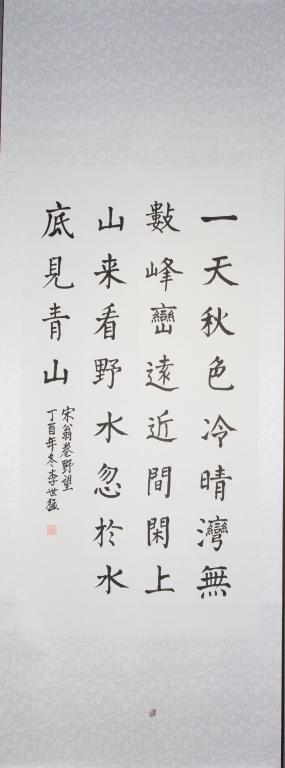 一天秋色冷晴灣無
數峰巒遠近間閑上
山来看野水忽於水
底見青山
宋翁卷野望
丁酉年冬李世猛